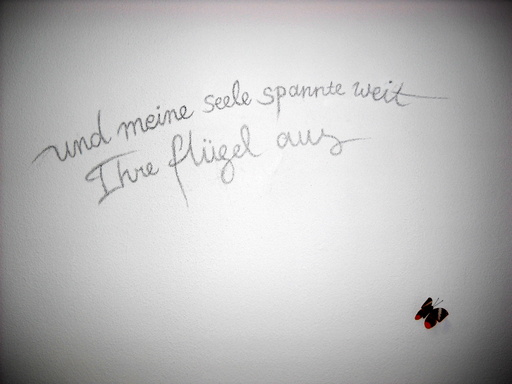 und meine seele spannte weit
Ihre flügel aus